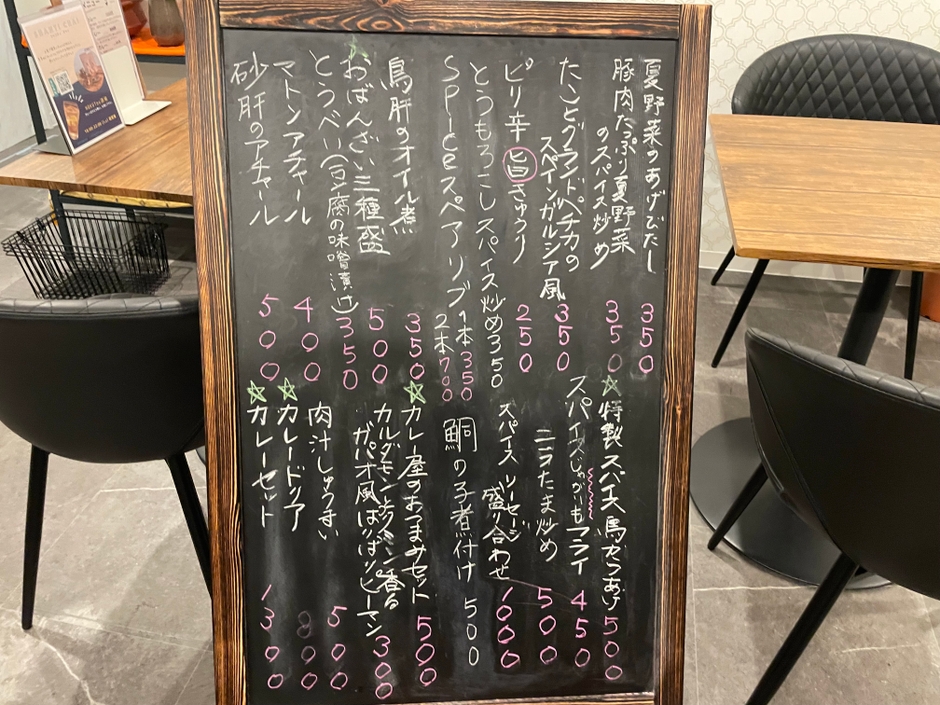 夏野菜のあげびたし 350
豚肉たっぷり夏野菜
のスパイス炒め 350
たことグランドペチカの
スペインガルシア風 350
ピリ辛旨きゅうり 250
とうもろこしスパイス炒め 350
SPICEスペアリブ 1本 350
2本 700
鳥肝のオイル煮 350
おばんざい三種盛 500
とうべい(豆腐の味噌漬け) 350
マトンアチャール 400
砂肝のアチャール 500
☆特製スパイス鳥からあげ 500
スパイスじゃがいもフライ 450
ニラたま炒め 500
スパイスソーセージ
盛り合わせ 1000
鯛の子煮付け 500
☆カレー屋のおつまみセット 500
カルダモンとクミン香る
ガパオ風ぱりぱりピーマン 300
肉汁しゅうまい 500
☆カレードリア 800
☆カレーセット 1300